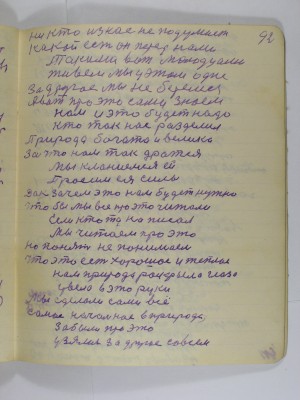 92
никто из нас не подумает
Какой есть он перед нами
Такими вот молодцами
живем мы у этом одне
За другое мы не беремся
про это сами знаем
нам и это будет надо
кто так нас разделил
Природа богата и велика
За что нам так дратся
мы кланяемся ей
Просим ея силы
Зачем это нам будет нужно
что бы мы все про это читали
Если кто то написал
мы читаем про это
но понять не понимаем
что это есть хорошое и теплое
нам природа раскрыла глаза
увела в это руки
мы сделали сами всё
самое начальное в природе,
Забыли про это
узялися за другое совсем